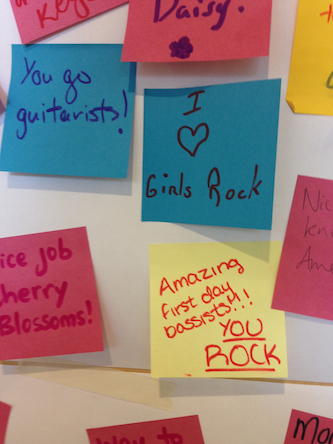 Daisy.
You go
guitarists!
I
♡
Girls Rock
Nice job
Cherry
Blossoms!
Amazing
first day
bassists!!!
YOU
ROCK
Nic
Am
Way to